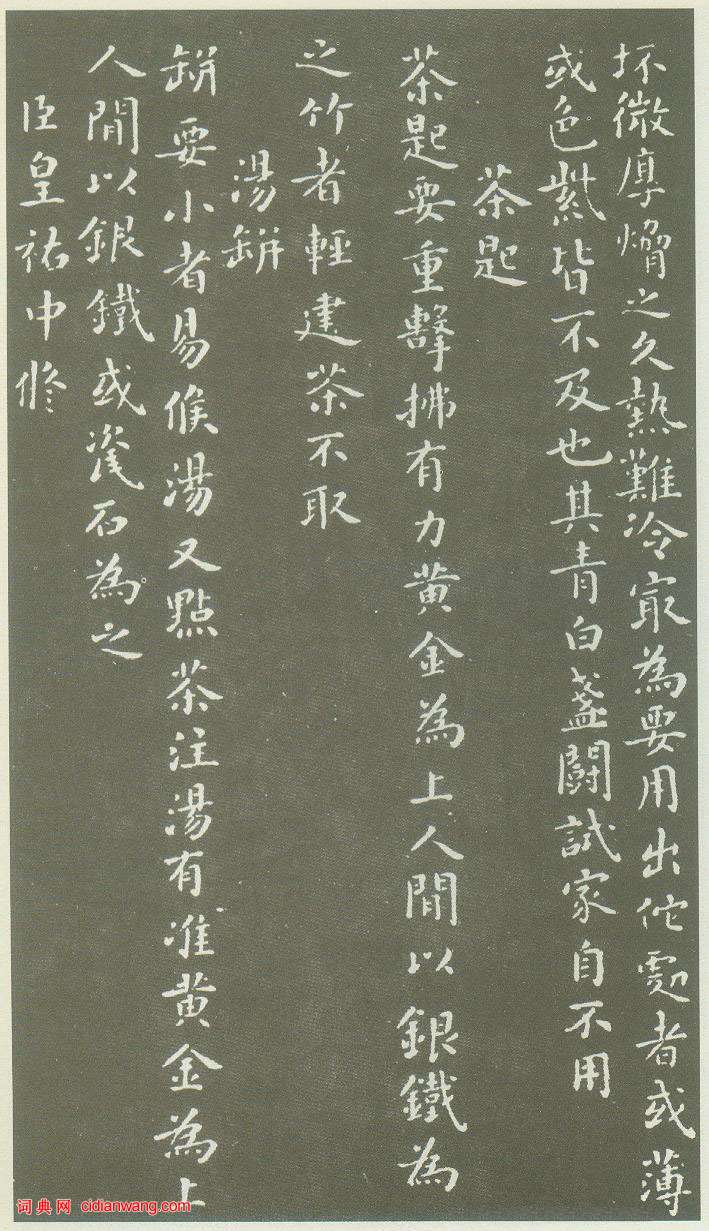 坯微厚熁之久熱難冷冣為要用出佗處者或薄
或色紫皆不及也其青白盞鬪試家自不用
茶匙
茶匙要重擊拂有力黄金為上人間以銀鐵為
之竹者輕建茶不取
湯缾
缾要小者易候湯又點茶注湯有准黄金為上
人間以銀鐵或瓷石為之
臣皇祐中修
词典网 cidianwang.com